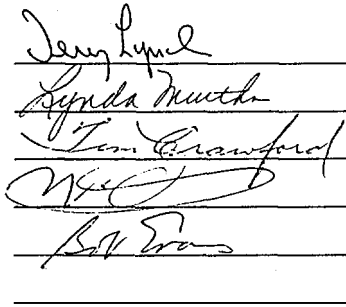 Terry Lynch
Lynda Murtha
Tim Crawford
Bob Evans